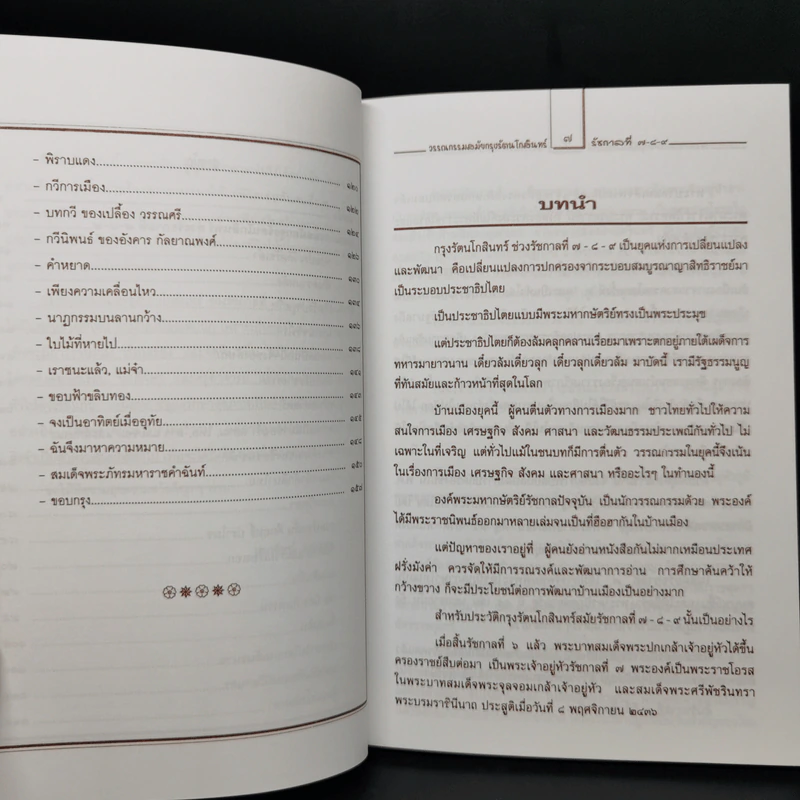 - พิราบแดง........................๑๒๑
- กวีการเมือง........................๑๒๒
- บทกวี ของเปลื้อง วรรณศรี........................๑๒๔
- กวีนิพนธ์ ของอังคาร กัลยาณพงศ์........................๑๒๖
- คำหยาด........................
- เพียงความเคลื่อนไหว........................๑๓๔
- นาฏกรรมบนลานกว้าง........................๑๓๖
- ใบไม้ที่หายไป........................๑๓๘
- เราชนะแล้ว, แม่จ๋า........................๑๔๒
- ขอบฟ้าขลิบทอง........................๑๔๓
- จงเป็นอาทิตย์เมื่ออุทัย........................๑๔๕
- ฉันจึงมาหาความหมาย........................๑๔๘
- สมเด็จพระภัทรมหาราชคำฉันท์........................๑๕๐
- ขอบกรุง........................๑๕๓
วรรณกรรมสมัยกรุงรัตนโกสินทร์ ๗ รัชกาลที่ ๗-๘-๙
บทนำ
กรุงรัตนโกสินทร์ ช่วงรัชกาลที่ ๗ - ๘ - ๙ เป็นยุคแห่งการเปลี่ยนแปลง
และพัฒนา คือเปลี่ยนแปลงการปกครองจากระบอบสมบูรณาญาสิทธิราชย์มา
เป็นระบอบประชาธิปไตย
เป็นประชาธิปไตยแบบมีพระมหากษัตริย์ทรงเป็นพระประมุข
แต่ประชาธิปไตยก็ต้องล้มคลุกคลานเรื่อยมาเพราะตกอยู่ภายใต้เผด็จการ
ทหารมายาวนาน เดี๋ยวล้มเดี๋ยวลุก เดี๋ยวลุกเดี๋ยวล้ม มาบัดนี้ เรามีรัฐธรรมนูญ
ที่ทันสมัยและก้าวหน้าที่สุดในโลก
บ้านเมืองยุคนี้ ผู้คนตื่นตัวทางการเมืองมาก ชาวไทยทั่วไปให้ความ
สนใจการเมือง เศรษฐกิจ สังคม ศาสนา และวัฒนธรรมประเพณีกันทั่วไป ไม่
เฉพาะในที่เจริญ แต่ทั่วไปแม้ในชนบทก็มีการตื่นตัว วรรณกรรมในยุคนี้จึงเน้น
ในเรื่องการเมือง เศรษฐกิจ สังคม และศาสนา หรืออะไรๆ ในทำนองนี้
องค์พระมหากษัตริย์รัชกาลปัจจุบัน เป็นนักวรรณกรรมด้วย พระองค์
ได้มีพระราชนิพนธ์ออกมาหลายเล่มจนเป็นที่ฮือฮากันในบ้านเมือง
แต่ปัญหาของเราอยู่ที่ ผู้คนยังอ่านหนังสือกันไม่มากเหมือนประเทศ
ฝรั่งมังค่า ควรจัดให้มีการรณรงค์และพัฒนาการอ่าน การศึกษาค้นคว้าให้
กว้างขวาง ก็จะมีประโยชน์ต่อการพัฒนาบ้านเมืองเป็นอย่างมาก
สำหรับประวัติกรุงรัตนโกสินทร์สมัยรัชกาลที่ ๗ - ๘ - ๙ นั้นเป็นอย่างไร
เมื่อสิ้นรัชกาลที่ ๖ แล้ว พระบาทสมเด็จพระปกเกล้าเจ้าอยู่หัวได้ขึ้น
ครองราชย์สืบต่อมา เป็นพระเจ้าอยู่หัวรัชกาลที่ ๗ พระองค์เป็นพระราชโอรส
ในพระบาทสมเด็จพระจุลจอมเกล้าเจ้าอยู่หัว และสมเด็จพระศรีพัชรินทรา
พระบรมราชินีนาถ ประสูติเมื่อวันที่ ๘ พฤศจิกายน ๒๔๓๖